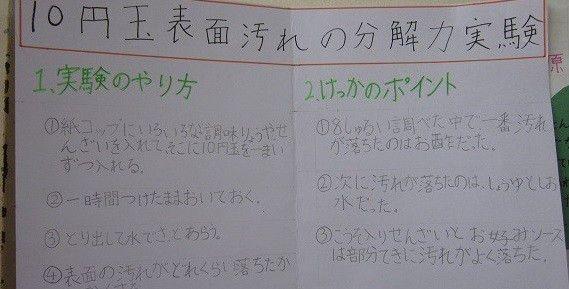 10円玉表面汚れの分解力実験
1.実験のやり方
①紙コップにいろいろな調味りょうやせ
んざいを入れて、そこに10円玉を一まい
ずつ入れる。
②一時間つけたままおいておく。
③とり出して水でさっとあらう。
④表面の汚れがどれくらい落ちたか
2.けっかのポイント
①8しゅるい調べた中で一番汚れ
が落ちたのはお酢だった。
②次に汚れが落ちたのは、しょうゆとしお
水だった。
③こうそ入りせんざいと、お好みソース
は部分てきに汚れがよく落ちた。
原